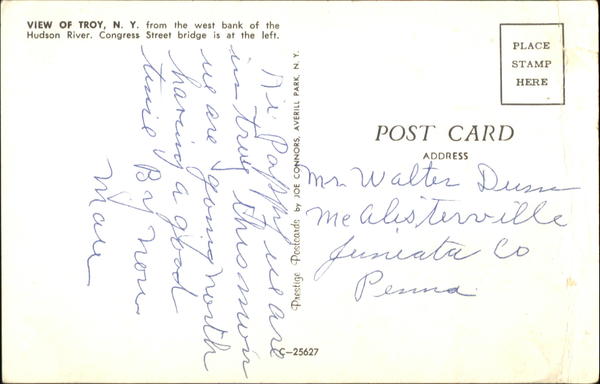 VIEW OF TROY, N. Y. from the west bank of the
Hudson River. Congress Street bridge is at the left.
Hi Pappy we are
in troy this morn
we are going north
having a good
time By now
Prestige Postcards by JOE CONNORS, AVERILL PARK, N. Y.
C-25627
PLACE
STAMP
HERE
POST CARD
ADDRESS
Mr. Walter Dunn
McAlisterville
Juniata Co
Penna.